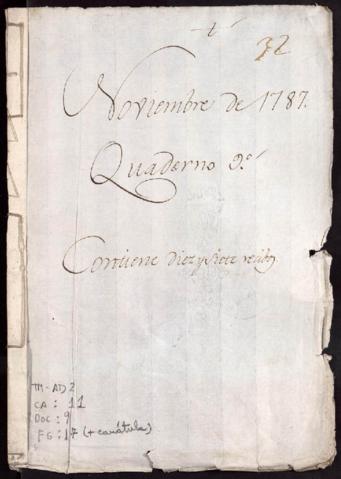 32
Noviembre de 1787.
Quaderno 9.º
Contiene Diez y Siete recibos
TM-AD2
CA: 11
DOC: 9
FG: 17 (+ carátula)